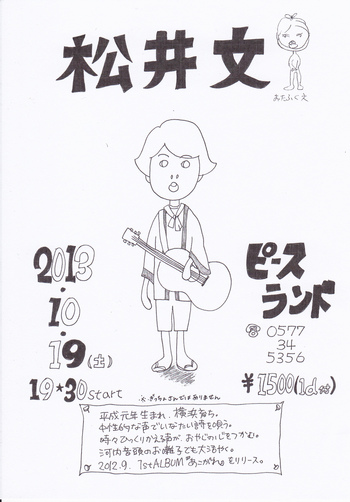 松井文
おたふく文
2013
.10
.19(土)
19★30start
ピース
ランド
☎0577
34
5356
¥1500(1d付)
※ぎっちょさんではありません
平成元年生まれ、横浜育ち。
中性的な声でいなたい詩を唄う。
時々ひっくりかえる声が、おやじの心をつかむ。
河内音頭のお囃子でも大活やく。
2012.9. 1stALBUM『あこがれ』をリリース。